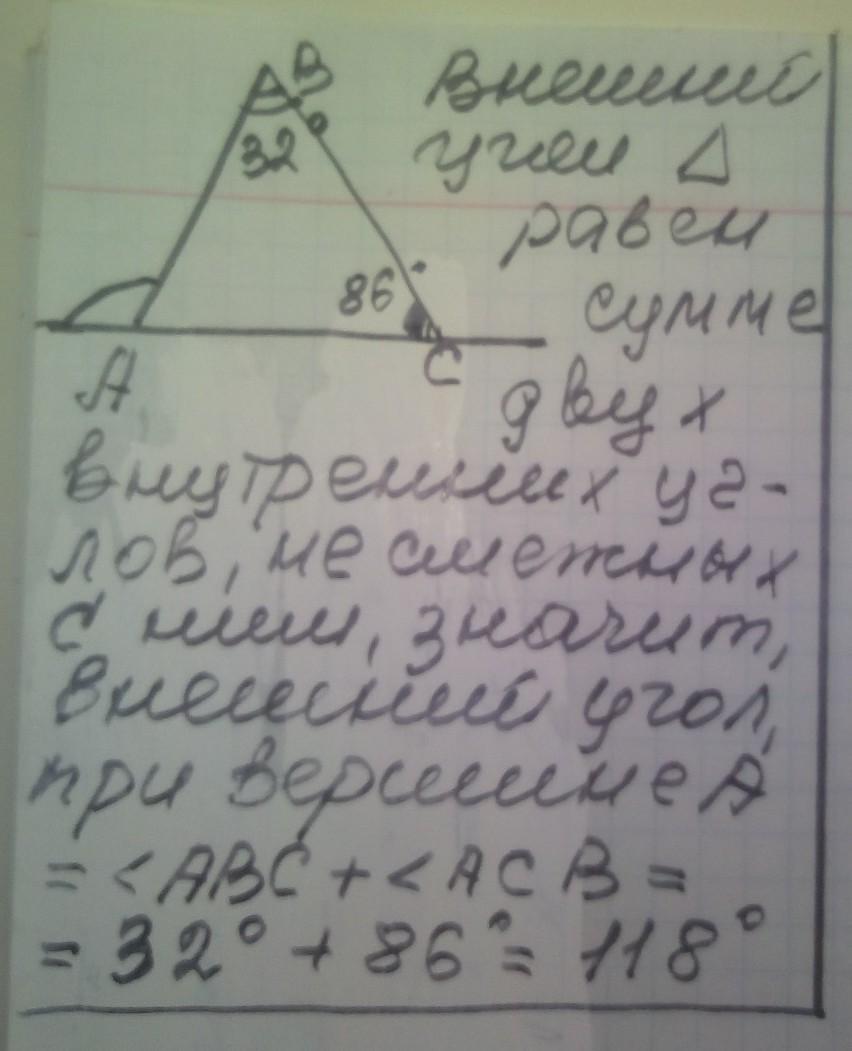 B
32°
86°
A
C
Внешний
угол △
равен
сумме
двух
внутренних уг-
лов, не смежных
с ним, значит,
внешний угол,
при вершине A
= <ABC + <ACB =
= 32° + 86° = 118°